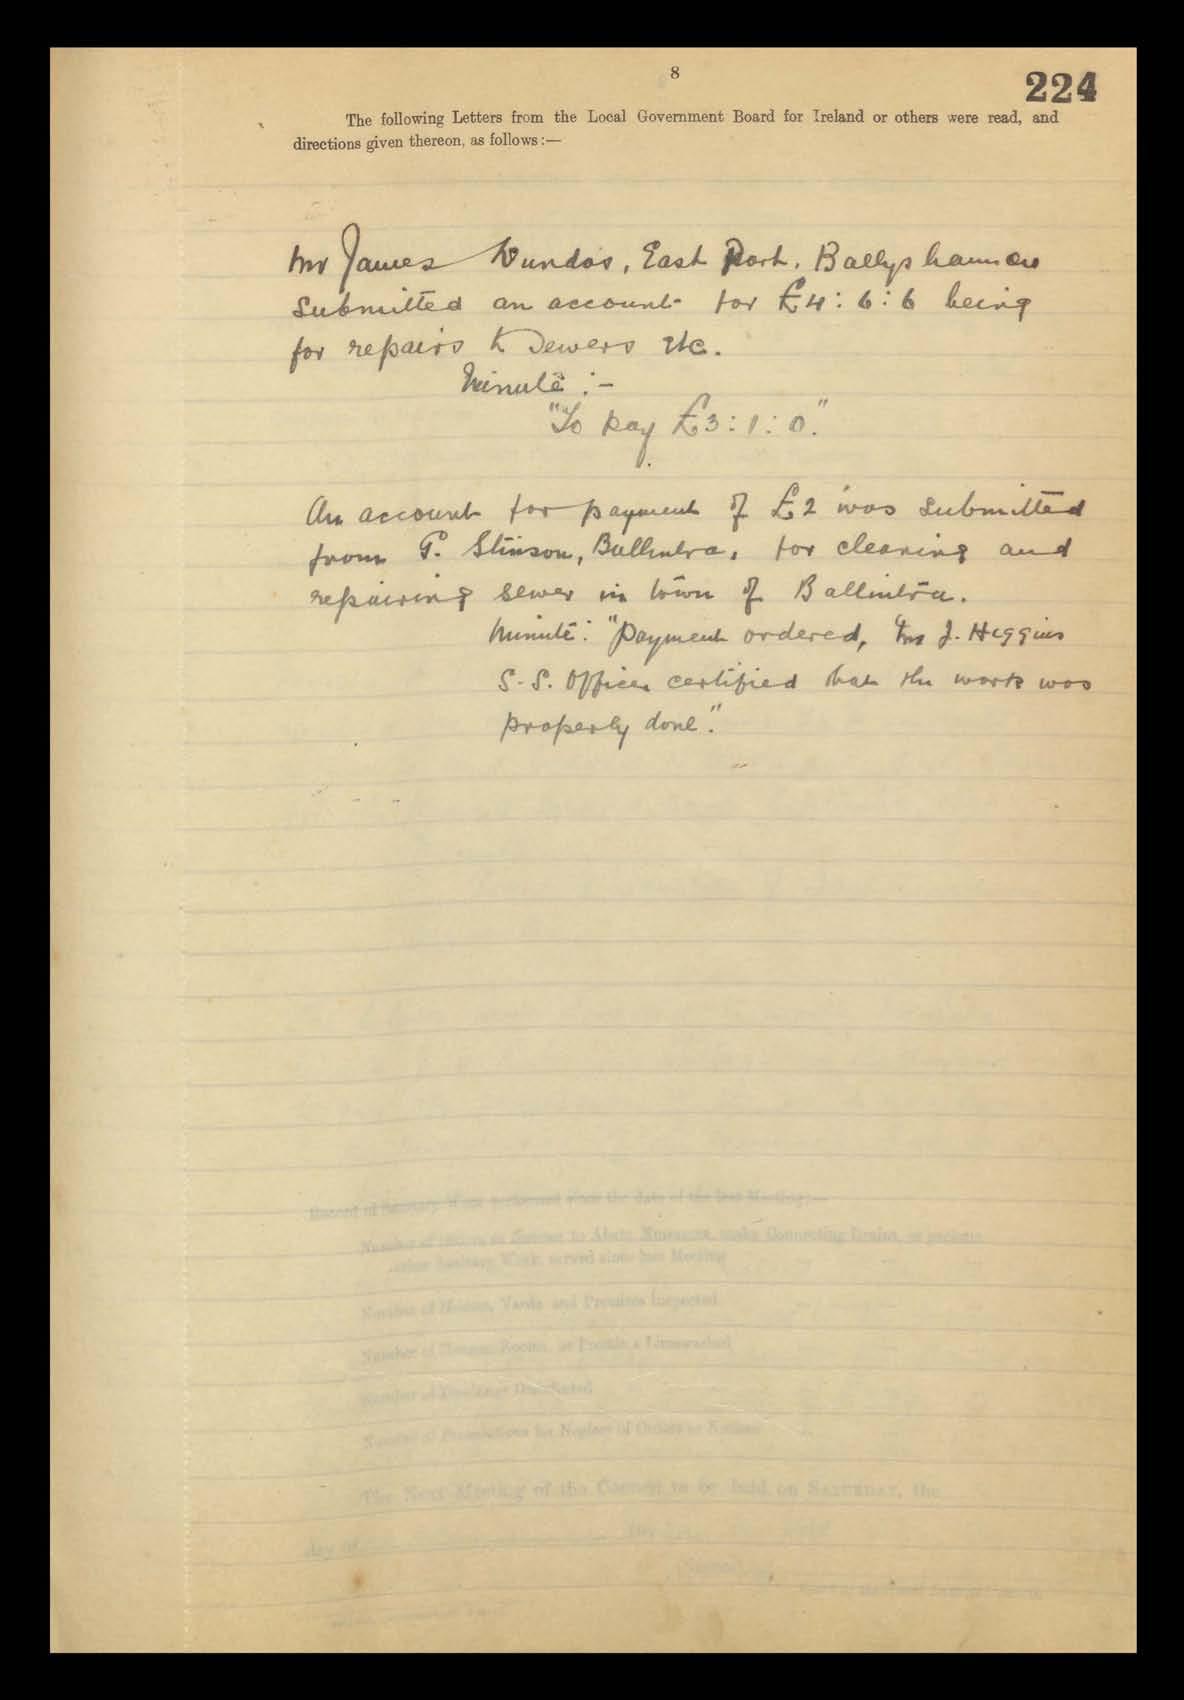 8
224
The following Letters from the Local Government Board for Ireland or others were read, and
directions given thereon, as follows :—
Mr James Dundas, East Port, Ballyshannon
Submitted an account for £4 : 6 : 6 being
for repairs to Sewers etc.
Minute :-
"To pay £3 : 1 : 0."
An account for payment of £2 was submitted
from G. Stinson, Ballintra, for cleaning and
repairing sewer in town of Ballintra.
Minute : "Payment ordered, Mr J. Higgins
S. S. Officer certified that the work was
properly done".
Record of Sanitary Work performed since the date of the last Meeting :—
Number of Orders or Notices to Abate Nuisances, make Connecting Drains, or perform
other Sanitary Work, served since last Meeting
Number of Houses, Yards and Premises Inspected
Number of Houses, Rooms, or Limewashed
Number of Disinfected
Number of Prosecutions for Neglect of Orders or Notices
The Next Meeting of the Council to be held on SATURDAY, the
day of